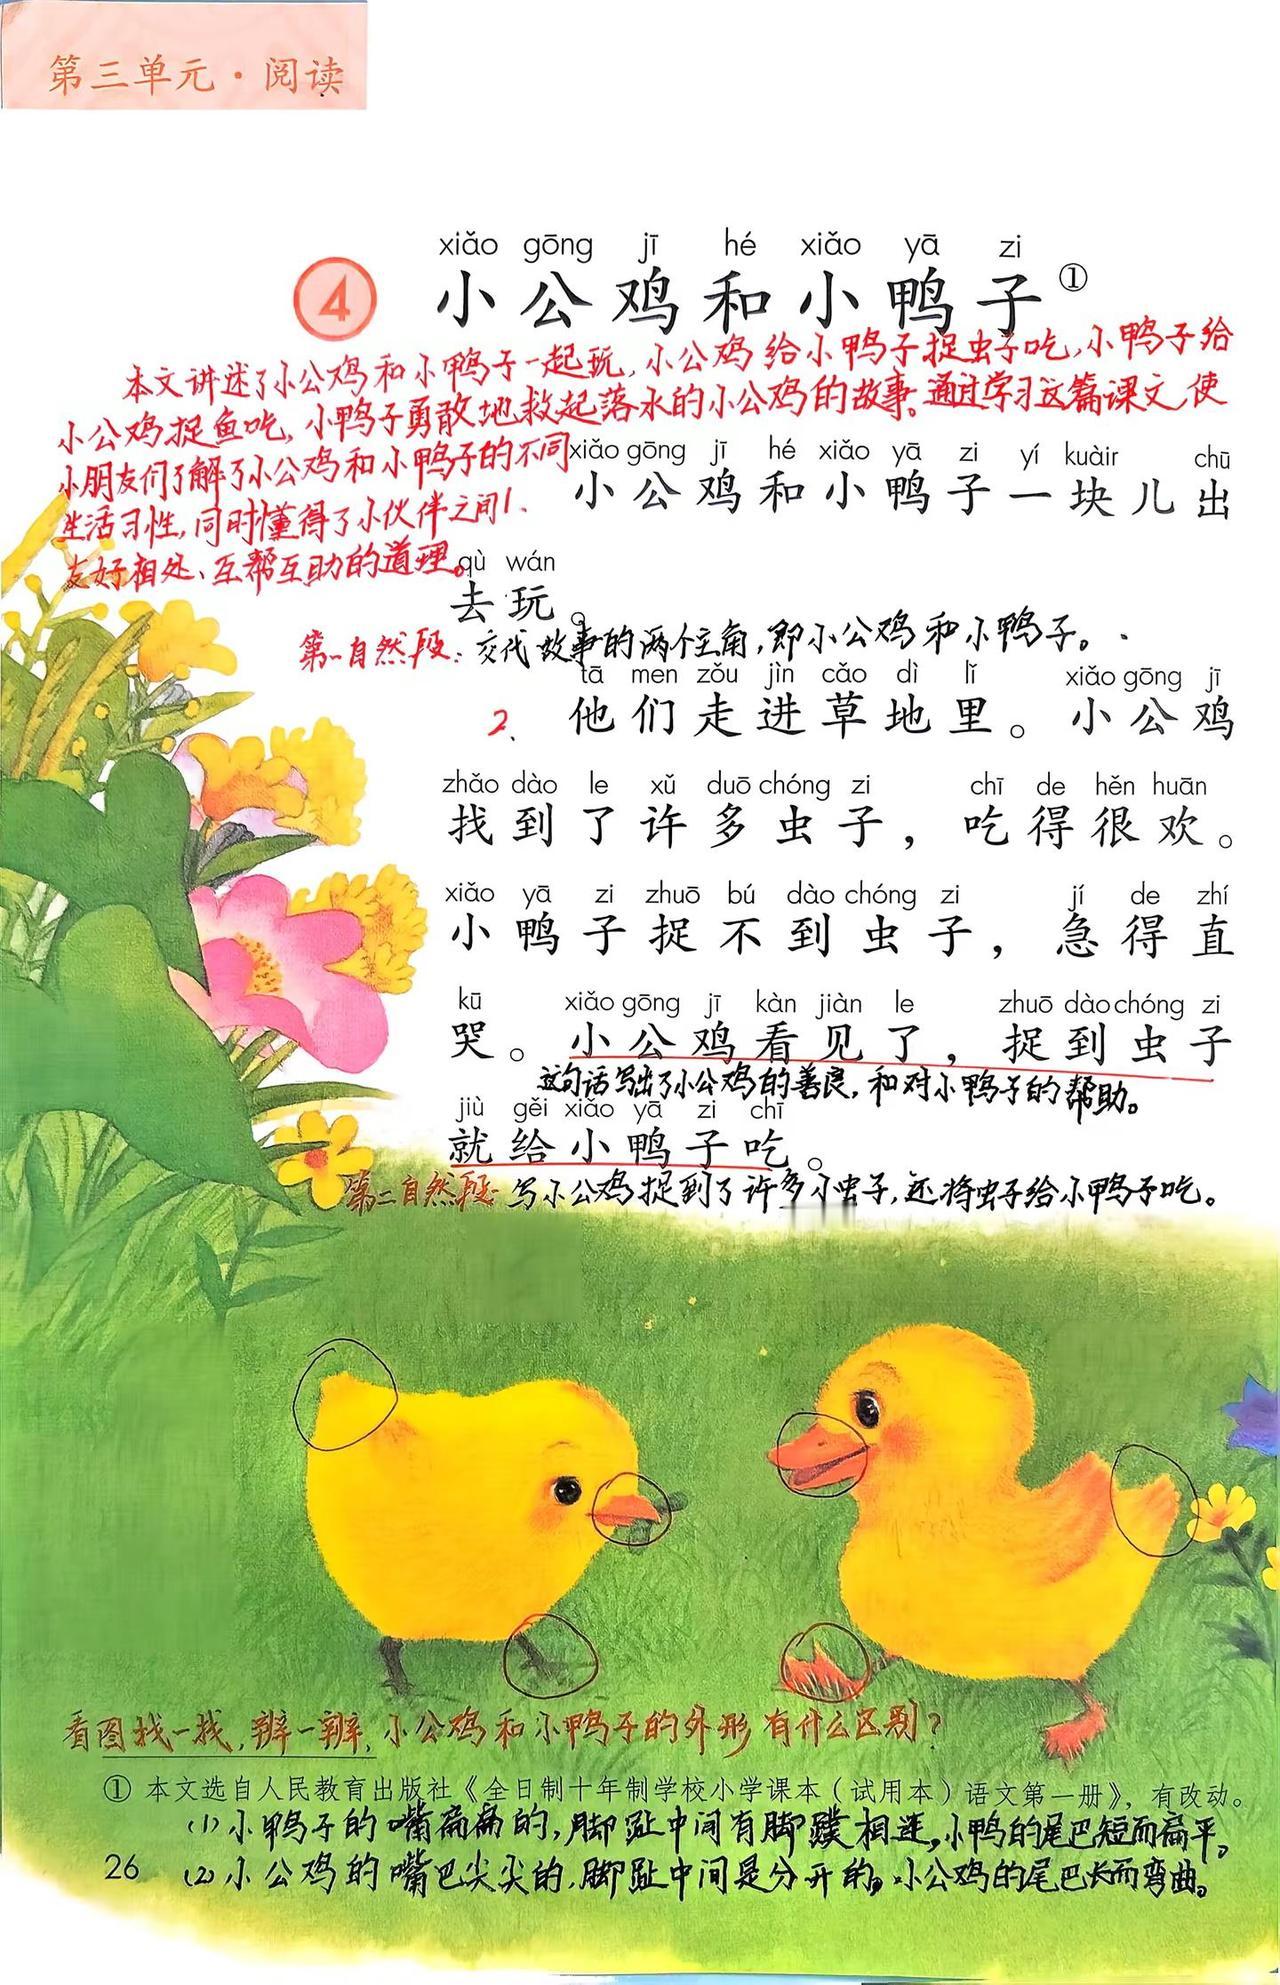 第三单元·阅读
xiǎo gōng jī hé xiǎo yā zi
4 小公鸡和小鸭子①
本文讲述了小公鸡和小鸭子一起玩,小公鸡给小鸭子捉虫子吃,小鸭子给
小公鸡捉鱼吃,小鸭子勇敢地救起落水的小公鸡的故事。通过学习这篇课文,使
小朋友们了解了小公鸡和小鸭子的不同
生活习性,同时懂得了小伙伴之间
友好相处、互帮互助的道理。
xiǎo gōng jī hé xiǎo yā zi yí kuàir chū
小公鸡和小鸭子一块儿出
qù wán
去玩。
第一自然段:交代故事的两个主角,即小公鸡和小鸭子。
tā men zǒu jìn cǎo dì lǐ xiǎo gōng jī
2、他们走进草地里。小公鸡
zhǎo dào le xǔ duō chóng zi chī de hěn huān
找到了许多虫子,吃得很欢。
xiǎo yā zi zhuō bú dào chóng zi jí de zhí
小鸭子捉不到虫子,急得直
kū xiǎo gōng jī kàn jiàn le zhuō dào chóng zi
哭。小公鸡看见了,捉到虫子
这句话写出了小公鸡的善良,和对小鸭子的帮助。
jiù gěi xiǎo yā zi chī
就给小鸭子吃。
第二自然段:写小公鸡捉到了许多小虫子,还将虫子给小鸭子吃。
看图找一找,辨一辨,小公鸡和小鸭子的外形有什么区别?
① 本文选自人民教育出版社《全日制十年制学校小学课本(试用本)语文第一册》,有改动。
(1)小鸭子的嘴扁扁的,脚趾中间有脚蹼相连,小鸭的尾巴短而扁平。
(2)小公鸡的嘴巴尖尖的,脚趾中间是分开的。小公鸡的尾巴长而弯曲。
26